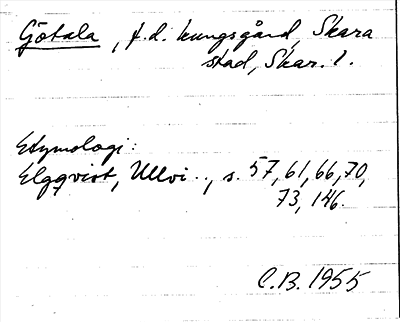 Götala, f.d. kungsgård, Skara
stad, Skar. l.
Etymologi:
Elgqvist, Ullvi.., s. 57, 61, 66, 70,
73, 146.
C.B. 1955